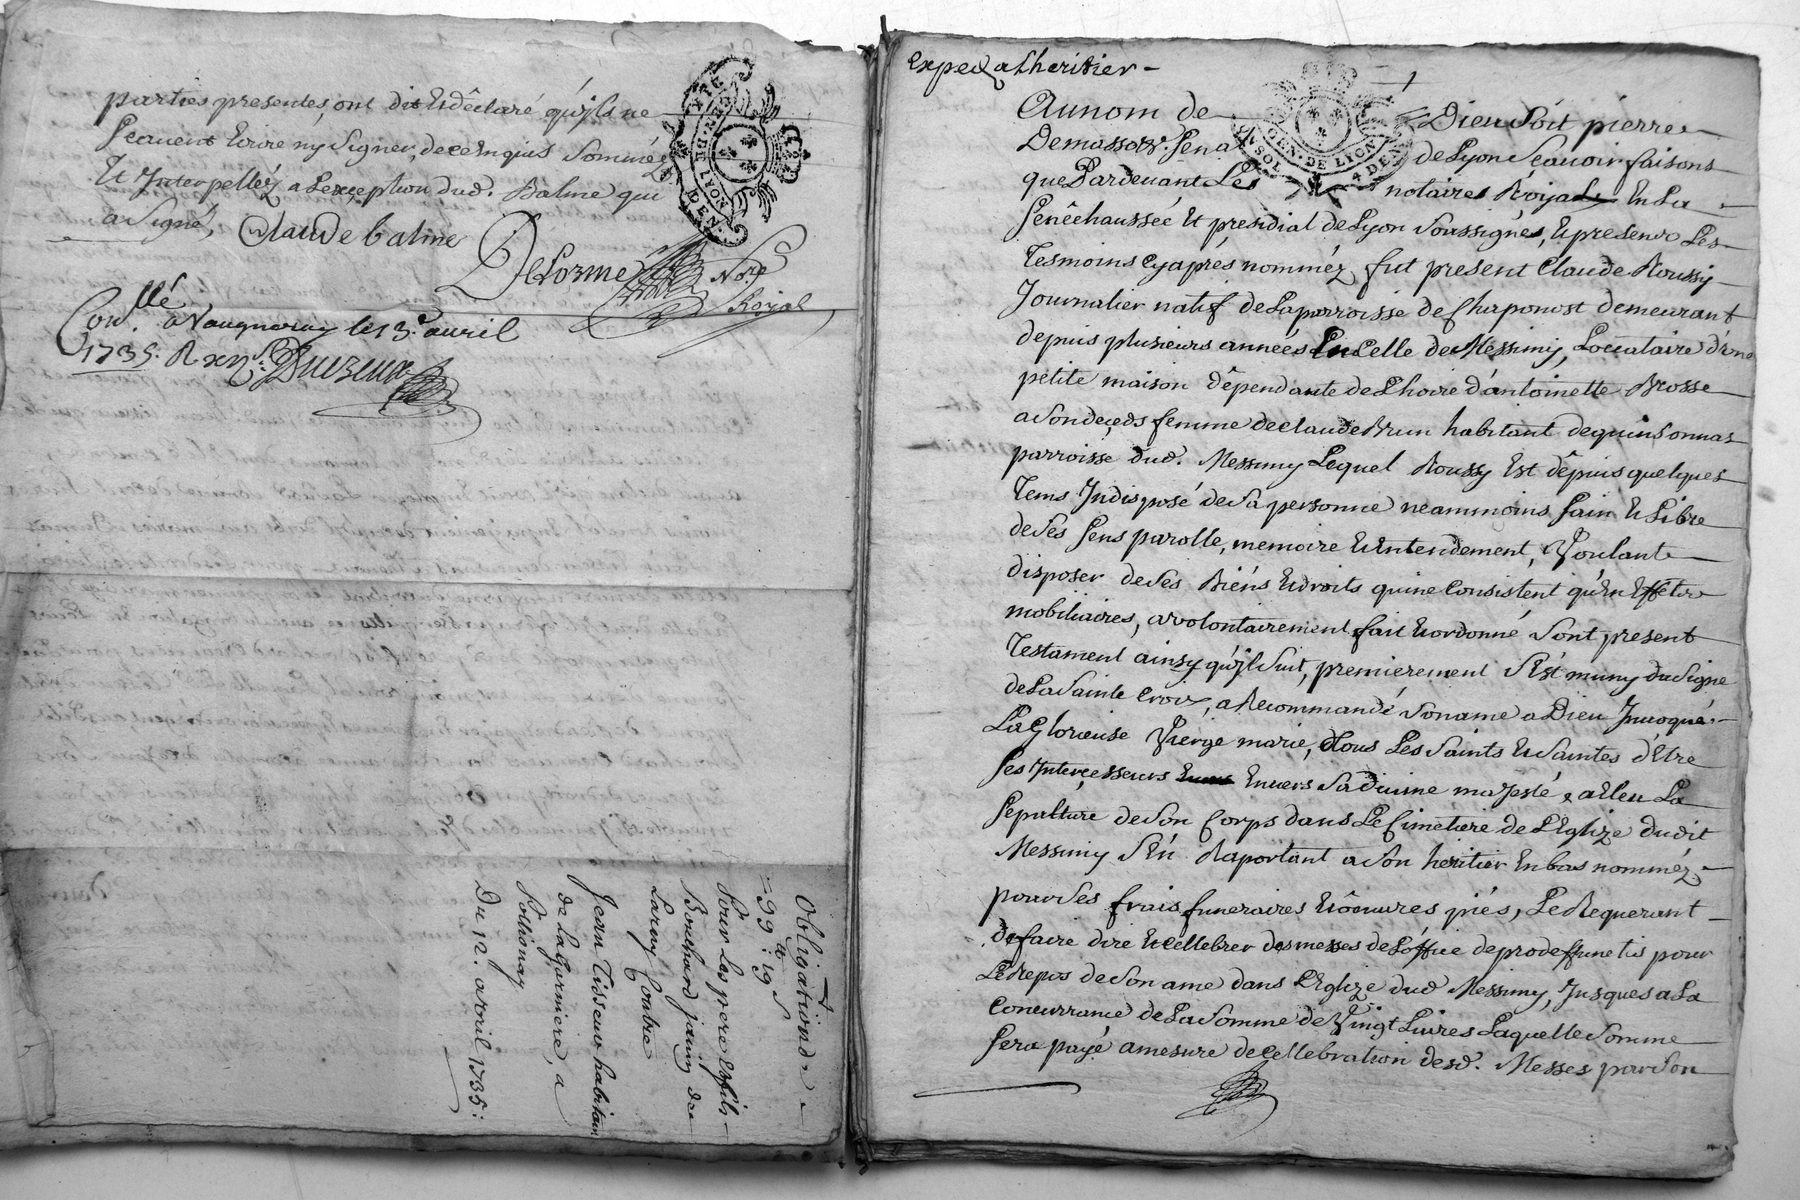 parties presentes, ont dit et dêclaré qu'ils ne
scauent Ecrire ny Signer, de ce Enquis Sommêz
Et Interpellêz a Lexception dud. Balme qui
a Signé,
Claude balme
Delorme Nore
Royal
Conllé a Vaugneray le 13e auril
1735. R
GEN. DE LYON
4 DEN
Obligation de
99 lt: 19 s
Pour Les pere & fils
Bouchard
Contre
Jean Tisseur habitant
de Lagarniere, a
Pollionay
Du 12. avril 1735:
Exped a Lheritier
Au nom de Dieu Soit pierre
De masso Sen a de Lyon Scauoir faisons
que Pardeuant Les notaires Roÿa En La
Senêchaussée Et presidial de Lyon Soussignés, Et presence Les
Tesmoins cy aprés nommêz, fut present Claude Roussy
Journalier natif de La parroisse de Chaponost demeurant
depuis plusieurs années En Celle de Messimy, Locataire d'une
petite maison dêpendante de L'hoirie d'antoinette Brosse
a Son deceds femme de claude Brun habitant de quinsonnas
parroisse dud. Messimy Lequel Roussy Est dêpuis quelques
Tems Indisposé de Sa personne neammoins Sain Et Libre
de Ses Sens parolle, memoire Et Entendement, Voulant
disposer de Ses Biéns Et droits qui ne Consistent qu'En Effets
mobiliaires, a volontairement fait Et ordonné Sont present
Testament ainsy qu'jl Suit, premierement S'Est muny du Signe
de La Sainte Croix, a Recommandé Son ame a Dieu Inuoqué
La Glorieuse Vierge marie, & tous Les Saints Et Saintes d'Etre
Ses Intercesseurs Enuers Sa diuine majesté, a Eleu La
Sepulture de Son Corps dans Le Cimetiere de L'Eglize dudit
Messimy S'En Raportant a Son heritier En bas nommêz
pour Ses frais funeraires Et ôeuures piés, Le Requerant
de faire dire Et Cellebrer des messes de L'office de pro deffunctis pour
Le Repos de Son ame dans L'Eglize dud Messimy, Jusques a La
Concurrance de La Somme de Vingt Liures Laquelle Somme
Sera payé a mesure de Cellebration desd. Messes par Son